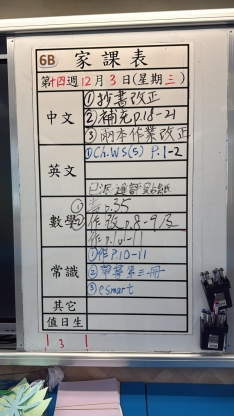 6B 家課表
第十四週12月3日(星期三)
中文
①抄書改正
②補充p.18-21
③兩本作業改正
英文
①Ch.WS(5) P.1-2
數學
①書p.35
②作改p.8-9及
作p.10-11
常識
①作P.10-11
②帶常第三冊
③esmart
其它
值日生
1 3 1